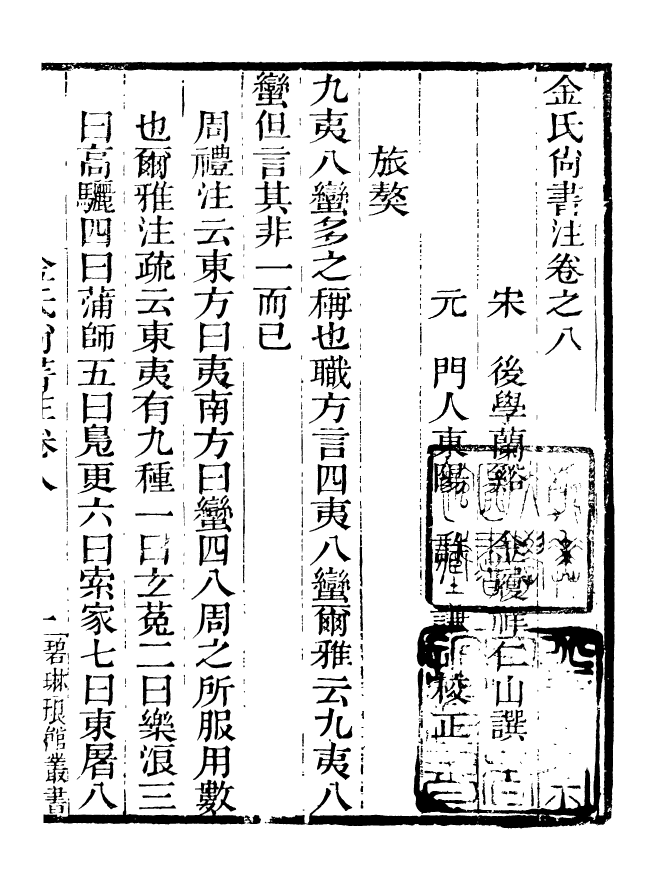 金氏尙書注卷之八
宋　後學蘭谿　金履祥仁山譔
元　門人東陽　許　謙　校正
旅獒
九夷八蠻多之稱也職方言四夷八蠻爾雅云九夷八
蠻但言其非一而已
周禮注云東方曰夷南方曰蠻四八周之所服用數
也爾雅注疏云東夷有九種一曰玄菟二曰樂浪三
曰高驪四曰蒲師五曰鳧更六曰索家七曰東屠八
金氏尙書注卷八
碧琳琅館叢書